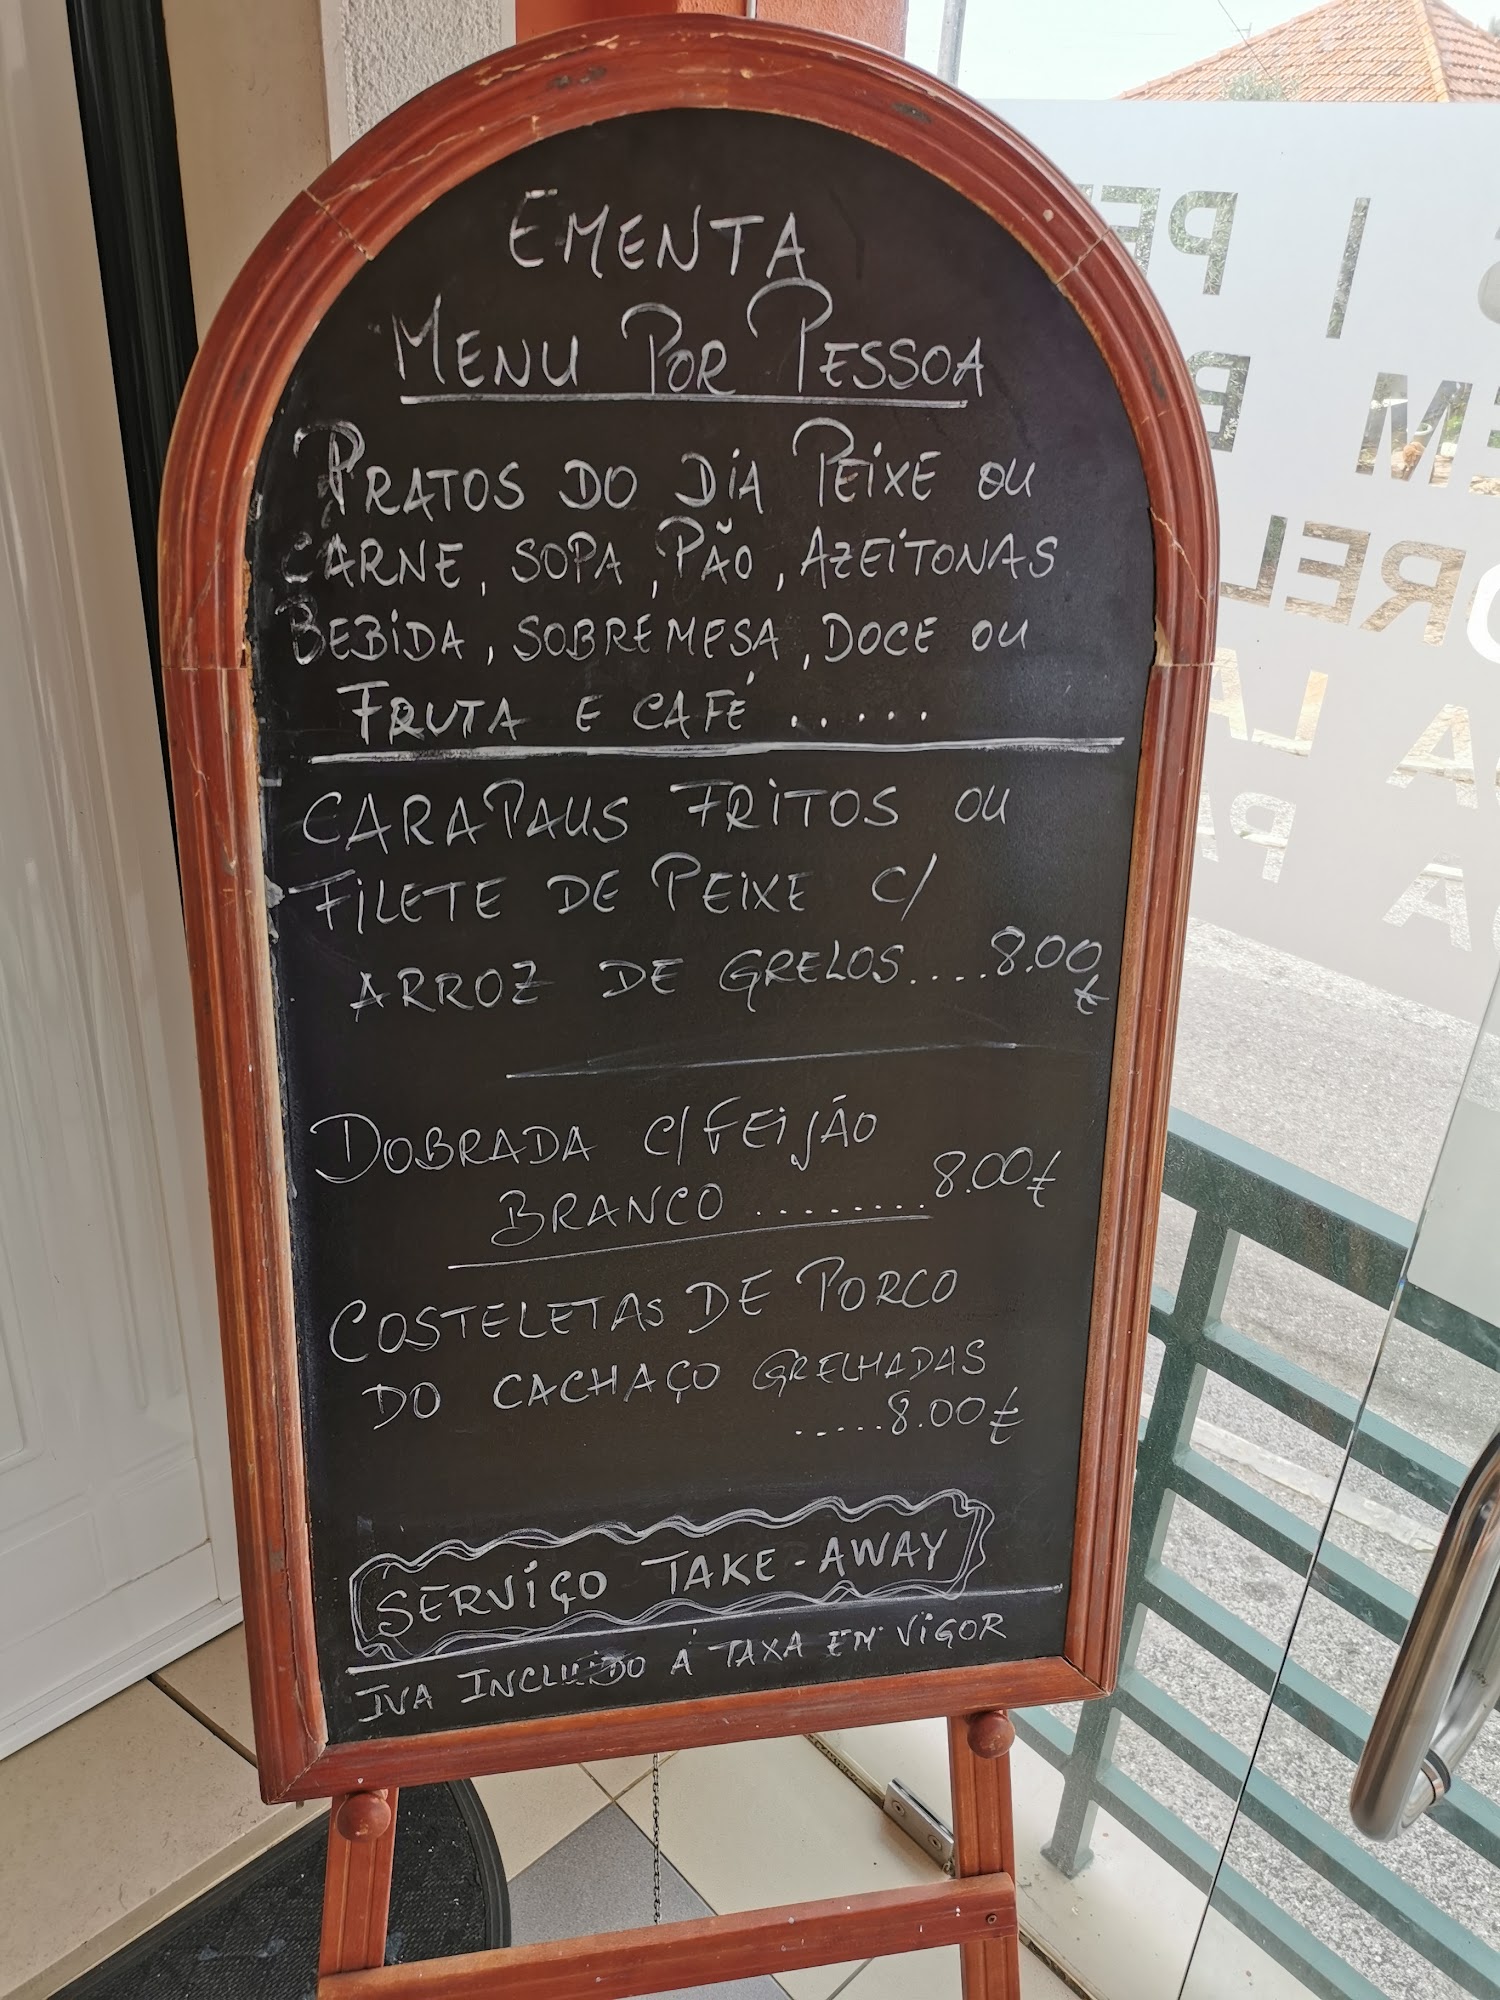 EMENTA
MENU POR PESSOA
PRATOS DO DIA PEIXE OU
CARNE, SOPA, PÃO, AZEITONAS
BEBIDA, SOBREMESA, DOCE OU
FRUTA E CAFÉ .....
CARAPAUS FRITOS OU
FILETE DE PEIXE C/
ARROZ DE GRELOS....8.00€
DOBRADA C/FEIJÃO
BRANCO ........8.00€
COSTELETAS DE PORCO
DO CACHAÇO GRELHADAS
.....8.00€
SERVIÇO TAKE-AWAY
IVA INCLUIDO Á TAXA EM VIGOR